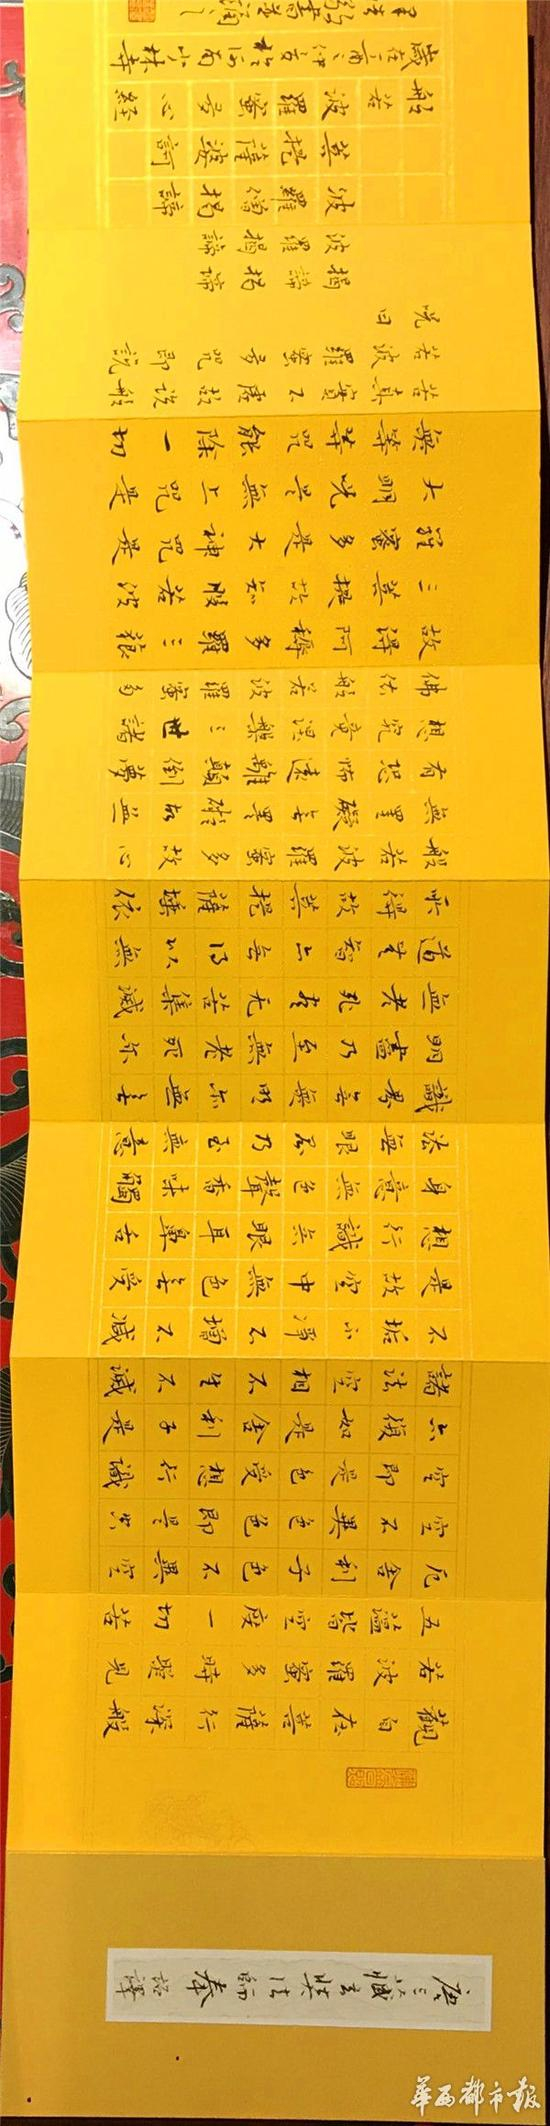 唐三藏玄奘法師奉
詔譯
觀自在菩薩行深般
若波羅蜜多時照見
五蘊皆空度一切苦
厄舍利子色不異空
空不異色色即是空
空即是色受想行識
亦復如是舍利子是
諸法空相不生不滅
不垢不淨不增不減
是故空中無色無受
想行識無眼耳鼻舌
身意無色聲香味觸
法無眼界乃至無意
識界無無明亦無無
明盡乃至無老死亦
無老死盡無苦集滅
道無智亦無得以無
所得故菩提薩埵依
般若波羅蜜多故心
無罣礙無罣礙故無
有恐怖遠離顛倒夢
想究竟涅槃三世諸
佛依般若波羅蜜多
故得阿耨多羅三藐
三菩提故知般若波
羅蜜多是大神咒是
大明咒是無上咒是
無等等咒能除一切
苦真實不虛故說般
若波羅蜜多咒即說
咒曰
揭諦揭諦
波羅揭諦
波羅僧揭諦
菩提薩婆訶
般若波羅蜜多心經
歲在丁酉仲春於河南少林寺
華西都市报